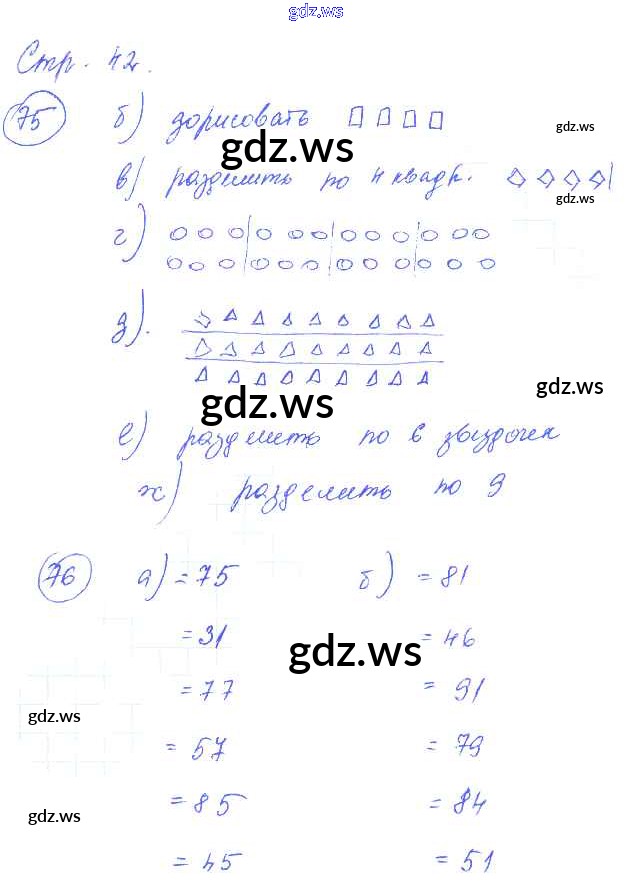 gdz.ws
Стр. 42.
75 б) дорисовать
gdz.ws
gdz.ws
в) разделить по 4 квадр.
gdz.ws
г)
д).
gdz.ws
gdz.ws
е) разделить по 6 звездочек
ж) разделить по 9
76 а) = 75 б) = 81
= 31 = 46
gdz.ws
= 77 = 91
gdz.ws
= 57 = 79
= 85 = 84
gdz.ws
= 45 = 51